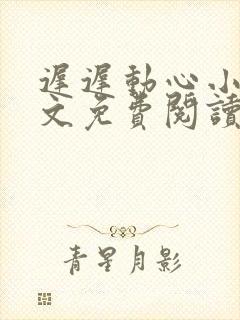 遲遲動心小
文免費閱讀
青星月影